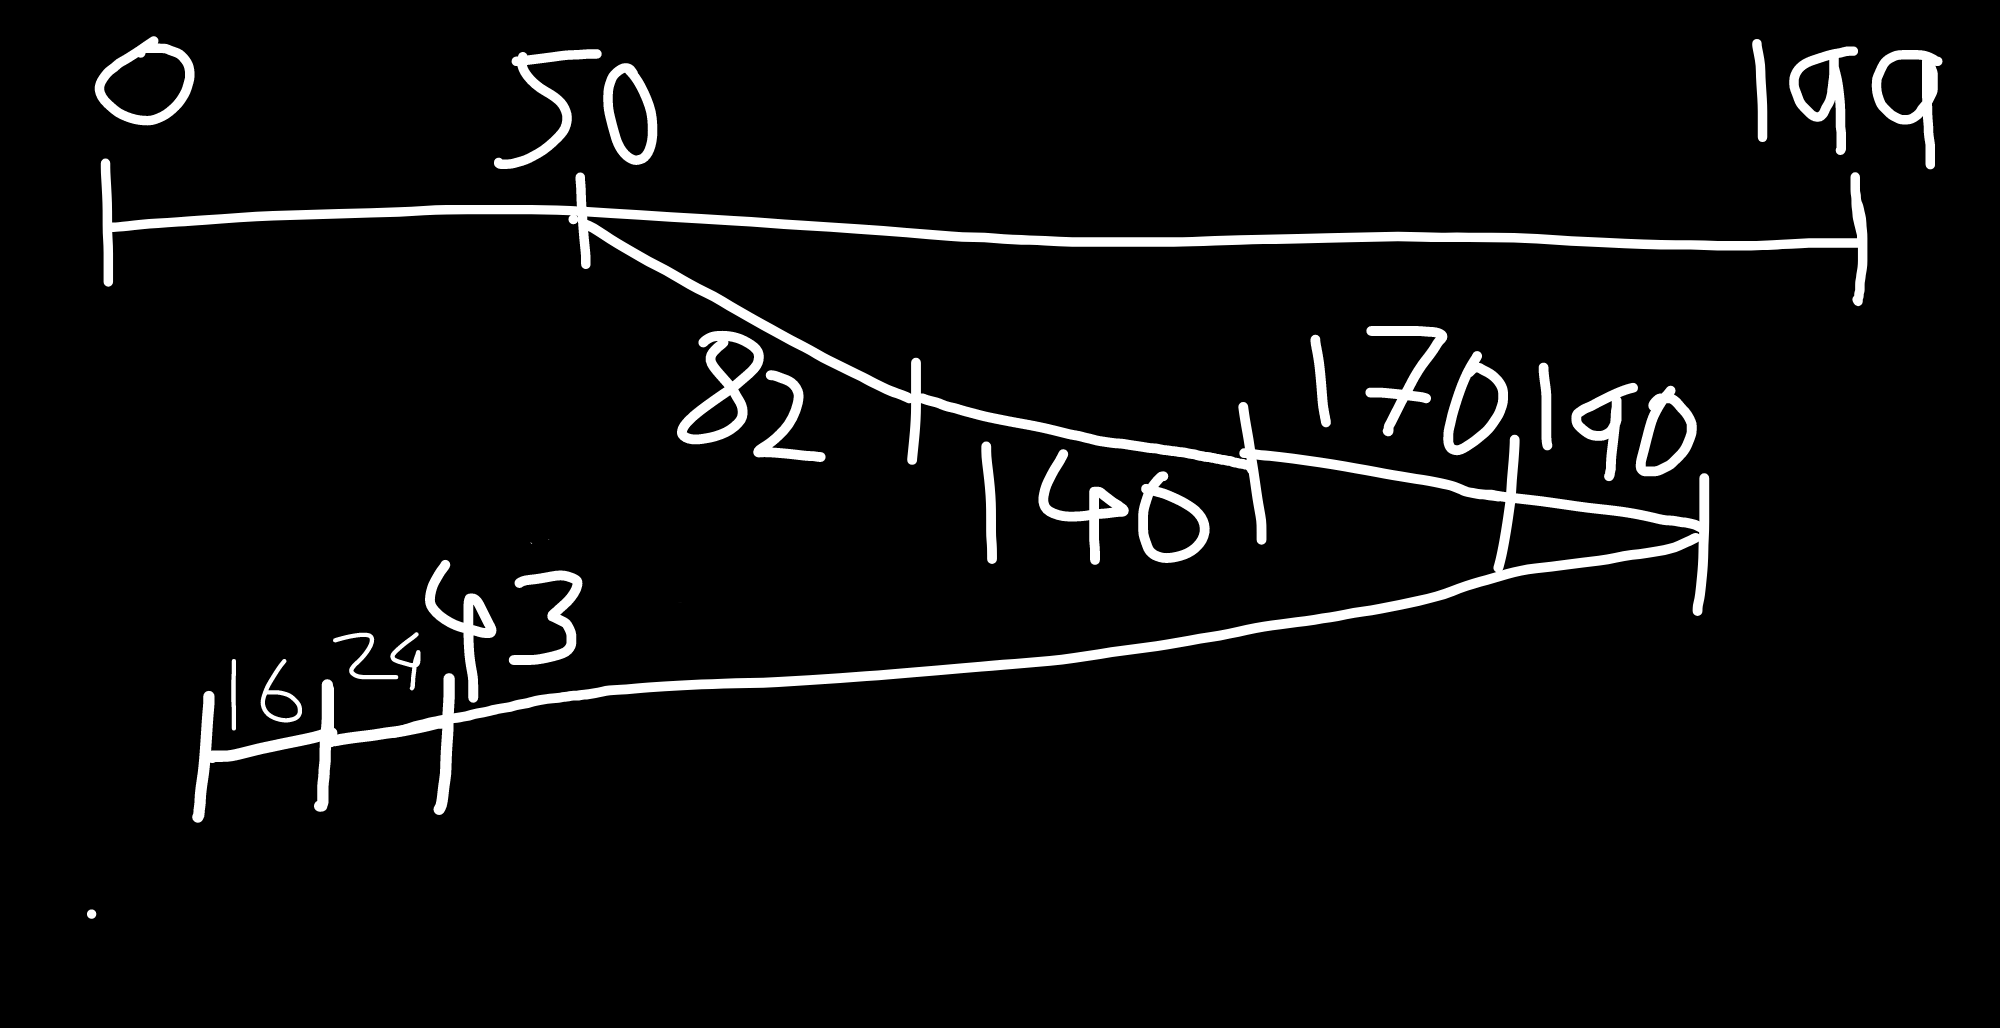 0 50 199
82 140 170 190
16 24 43